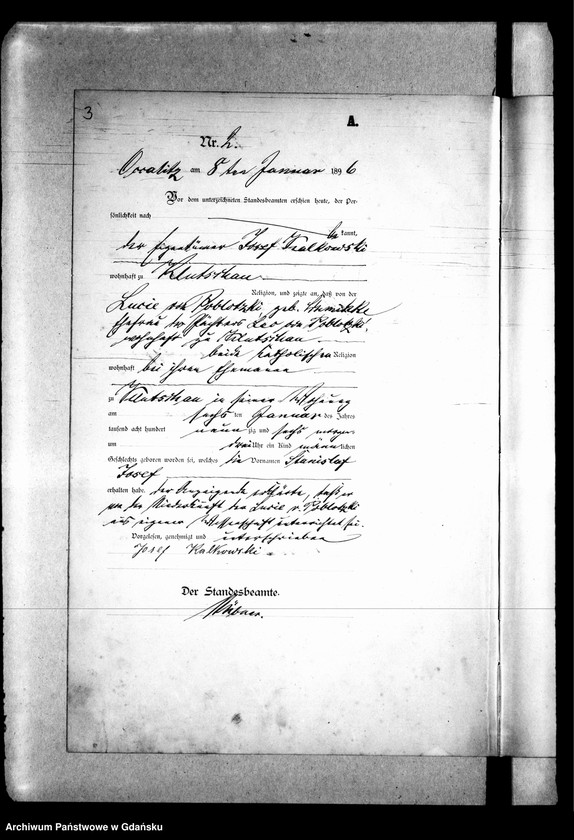 3
A.
Nr. 2.
Occalitz am 8ten Januar 1896
Vor dem unterzeichneten Standesbeamten erschien heute, der Per-
sönlichkeit nach
bekannt,
der Eigentümer Josef Kalkowski
wohnhaft zu Klutschau
Religion, und zeigte an, daß von der
Lucie von Poblotzki, geb.
Ehefrau des Pächters Leo von Poblotzki,
wohnhaft zu Klutschau
beide katholischen Religion
wohnhaft bei ihrem Ehemanne
zu Klutschau in seiner Wohnung
am sechsten Januar des Jahres
tausend acht hundert neunzig und sechs morgens
um drei Uhr ein Kind männlichen
Geschlechts geboren worden sei, welches die Vornamen Stanislaf
Josef
erhalten habe. Der Anzeigende erklärte, daß er
von der Niederkunft der Lucie v. Poblotzki
aus eigener Wissenschaft unterrichtet sei.
Vorgelesen, genehmigt und unterschrieben
Josef Kalkowski
Der Standesbeamte.
Archiwum Państwowe w Gdańsku